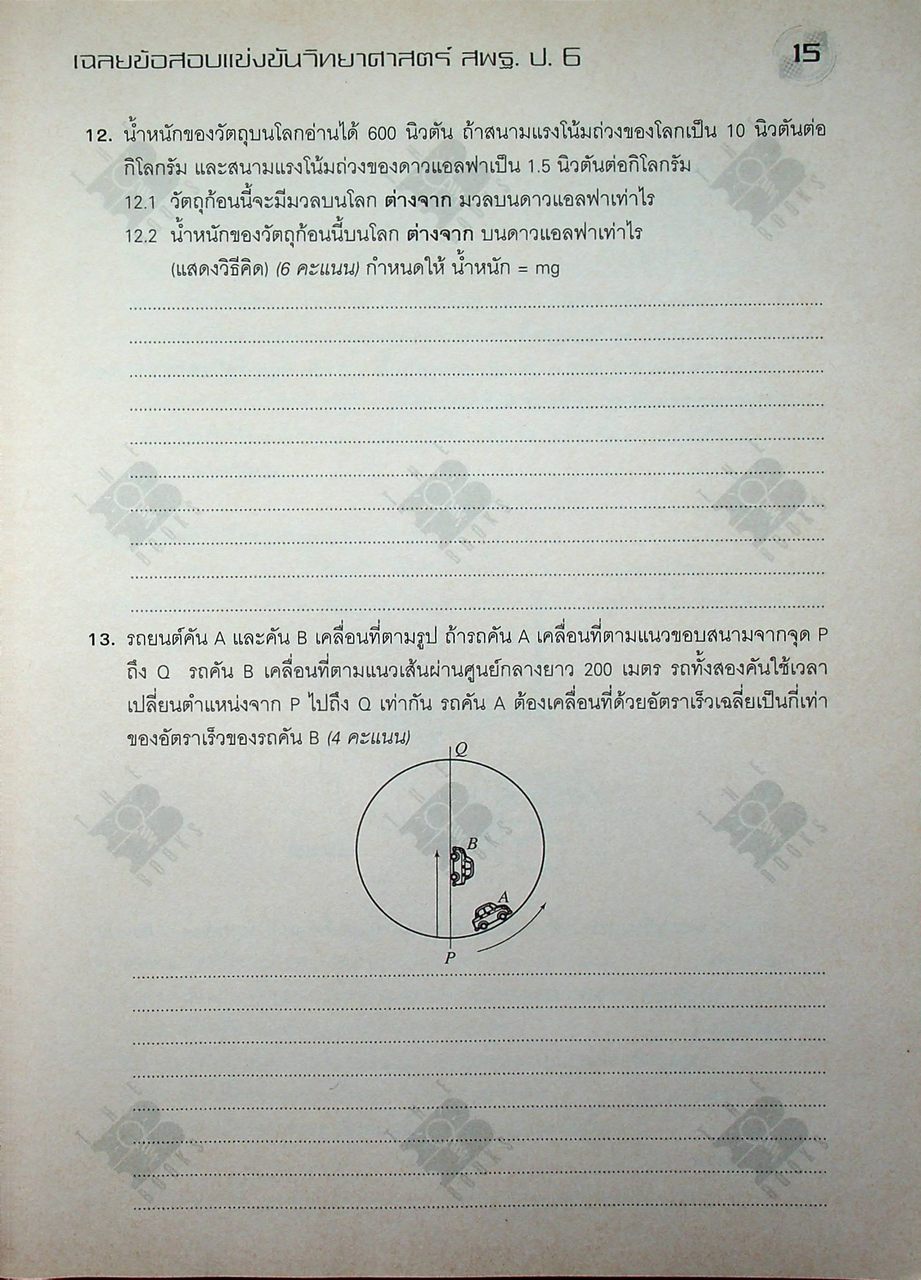 เฉลยข้อสอบแข่งขันวิทยาศาสตร์ สพฐ. ป. 6
15
12. น้ำหนักของวัตถุบนโลกอ่านได้ 600 นิวตัน ถ้าสนามแรงโน้มถ่วงของโลกเป็น 10 นิวตันต่อ
กิโลกรัม และสนามแรงโน้มถ่วงของดาวแอลฟาเป็น 1.5 นิวตันต่อกิโลกรัม
12.1 วัตถุก้อนนี้จะมีมวลบนโลก ต่างจาก มวลบนดาวแอลฟาเท่าไร
12.2 น้ำหนักของวัตถุก้อนนี้บนโลก ต่างจาก บนดาวแอลฟาเท่าไร
(แสดงวิธีคิด) (6 คะแนน) กำหนดให้ น้ำหนัก = mg
13. รถยนต์คัน A และคัน B เคลื่อนที่ตามรูป ถ้ารถคัน A เคลื่อนที่ตามแนวขอบสนามจากจุด P
ถึง Q รถคัน B เคลื่อนที่ตามแนวเส้นผ่านศูนย์กลางยาว 200 เมตร รถทั้งสองคันใช้เวลา
เปลี่ยนตำแหน่งจาก P ไปถึง Q เท่ากัน รถคัน A ต้องเคลื่อนที่ด้วยอัตราเร็วเฉลี่ยเป็นกี่เท่า
ของอัตราเร็วของรถคัน B (4 คะแนน)
Q
B
A
P
THE
BOOKS
THE
BOOKS
THE
BOOKS
THE
BOOKS
THE
BOOKS
THE
BOOKS
THE
BOOKS
THE
BOOKS
THE
BOOKS
THE
BOOKS
THE
BOOKS
THE
BOOKS